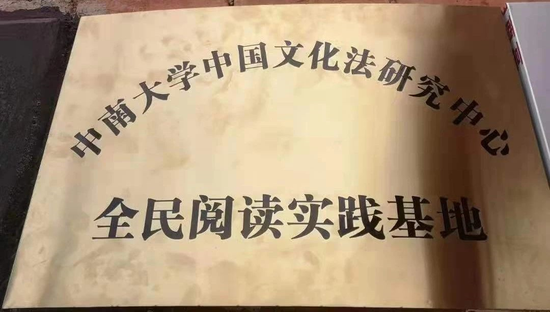 中南大学中国文化法研究中心
全民阅读实践基地